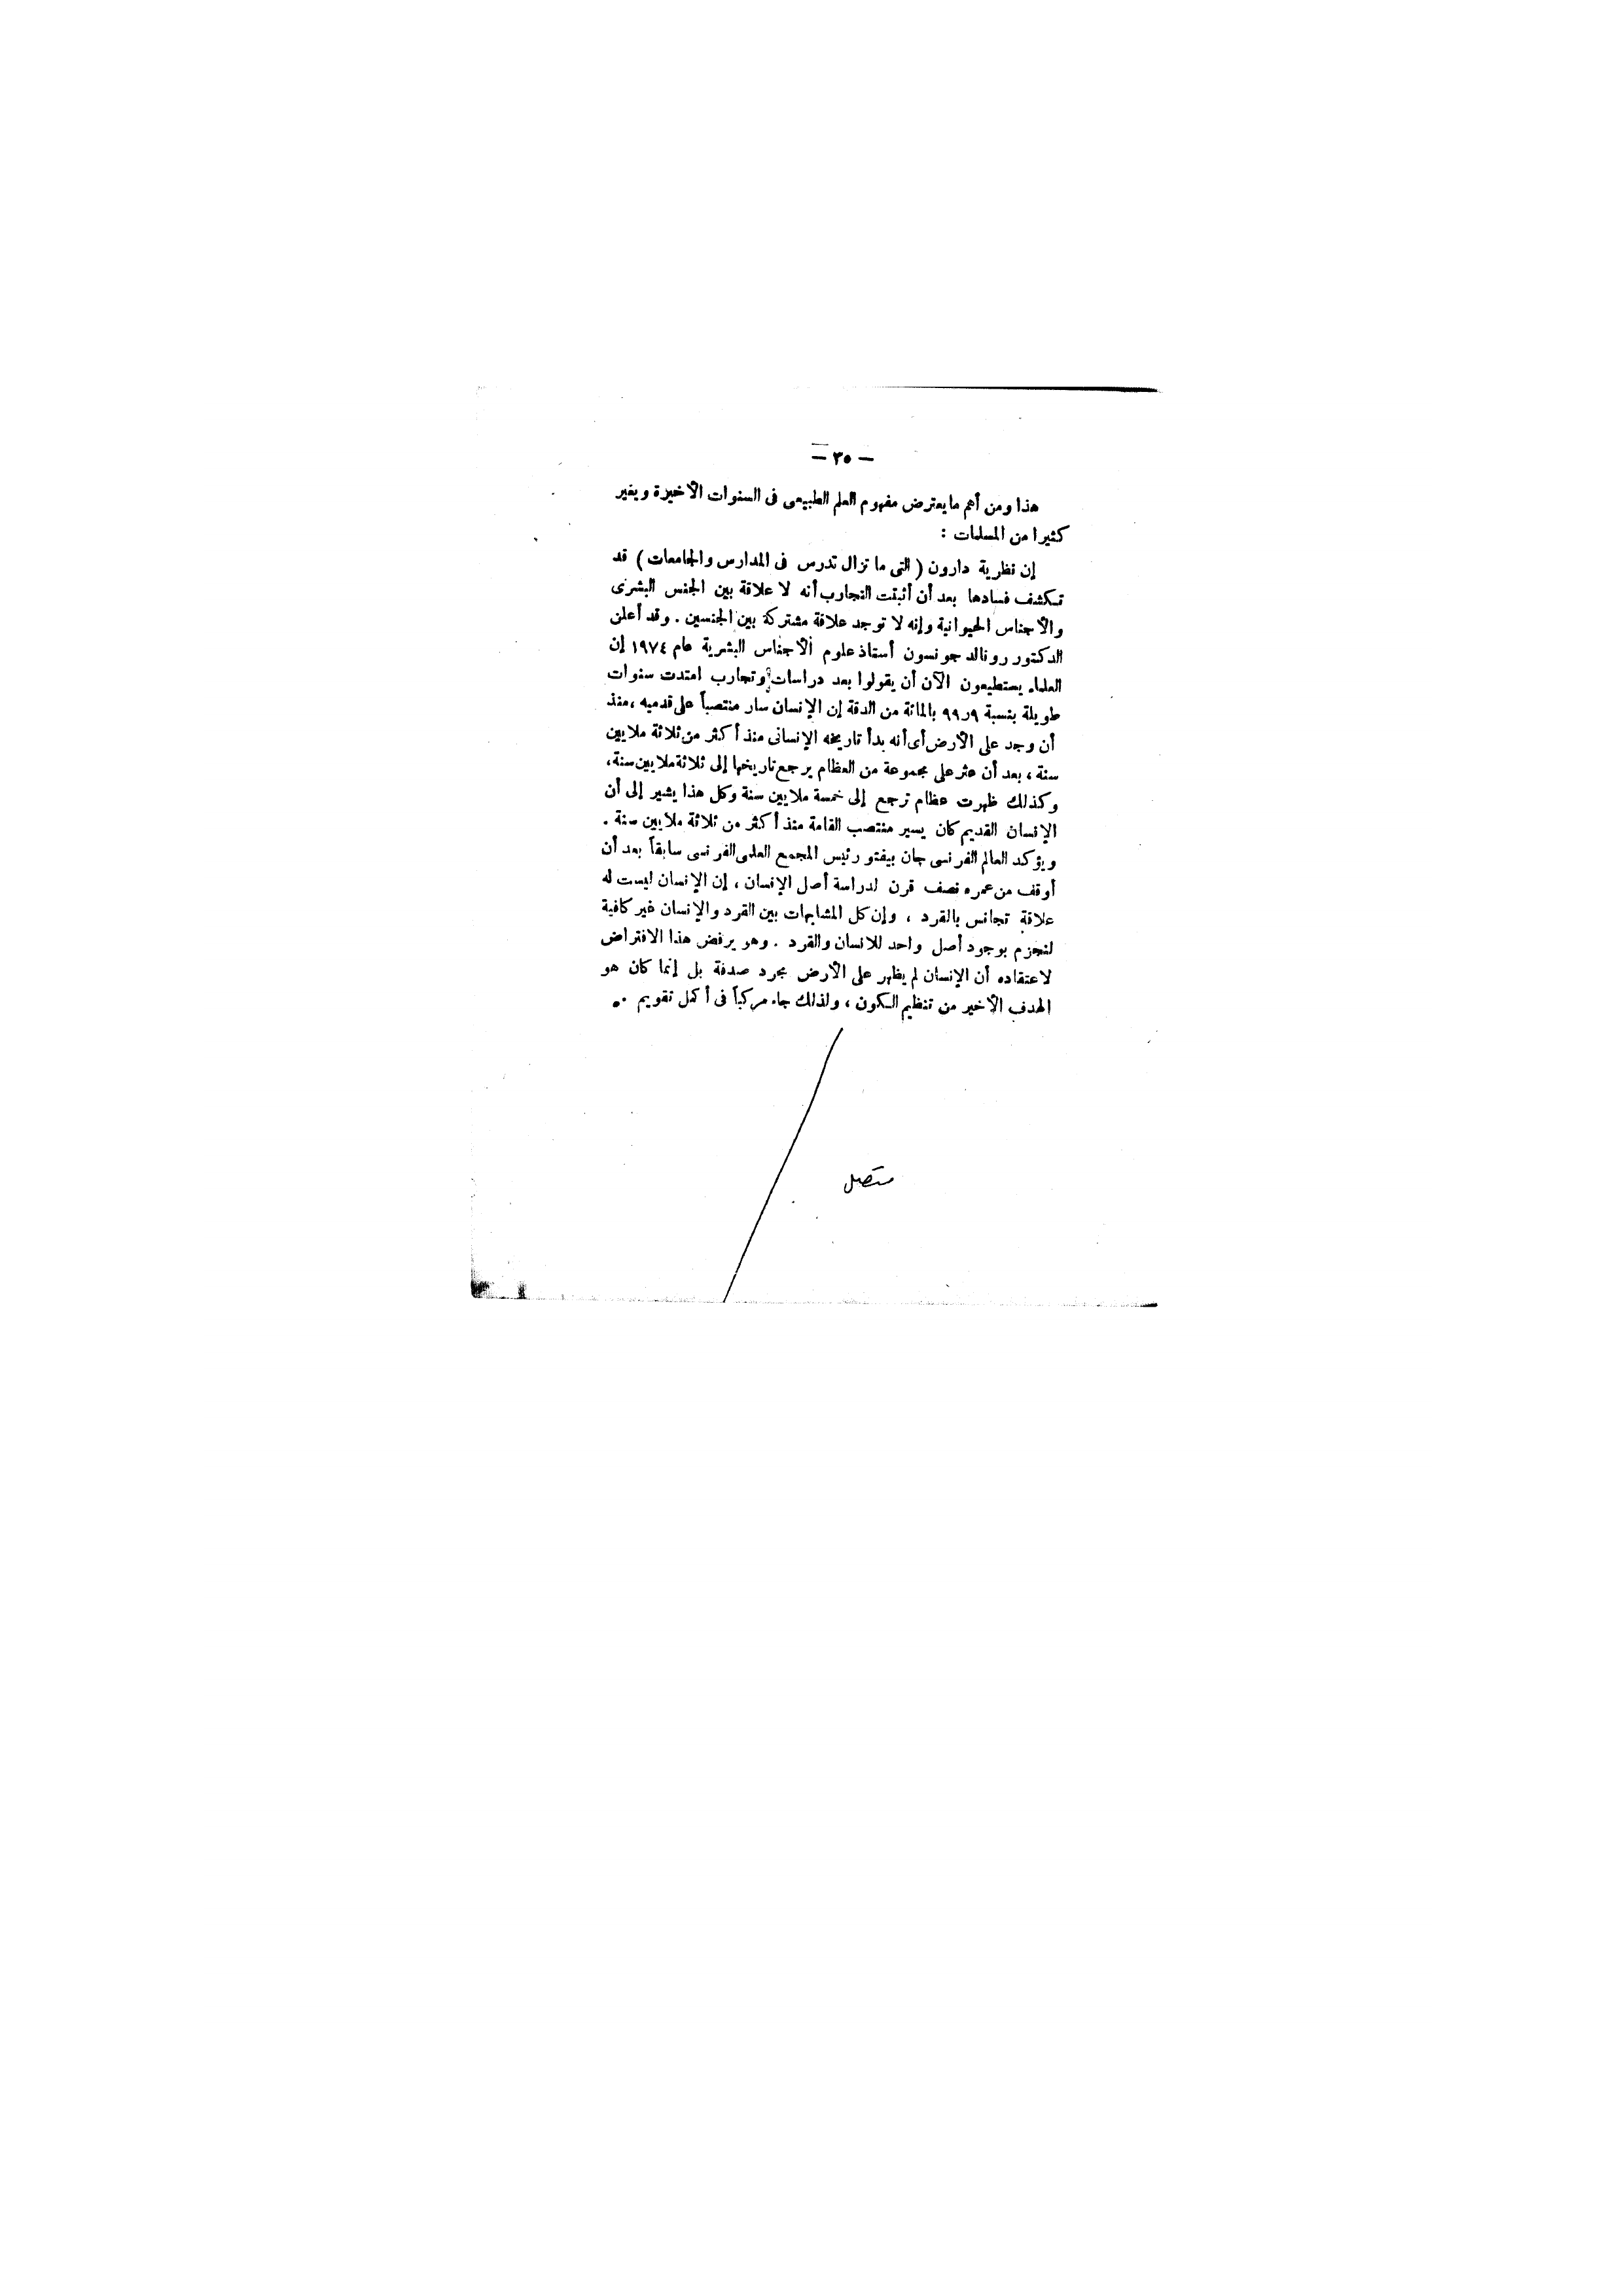 — ٣٥ —
هذا ومن أهم ما يعترض مفهوم العلم الطبيعى فى السنوات الأخيرة ويغير
كثيرا من المسلمات :
إن نظرية دارون ( التى ما تزال تدرس فى المدارس والجامعات ) قد
تكشف فسادها بعد أن أثبتت التجارب أنه لا علاقة بين الجنس البشرى
والأجناس الحيوانية وإنه لا توجد علاقة مشتركة بين الجنسين . وقد أعلن
الدكتور رونالد جونسون أستاذ علوم الأجناس البشرية عام ١٩٧٤ إن
العلماء يستطيعون الآن أن يقولوا بعد دراسات وتجارب امتدت سنوات
طويلة بنسبة ٩ر٩٩ بالمائة من الدقة إن الإنسان سار منتصباً على قدميه ، منذ
أن وجد على الأرض أى أنه بدأ تاريخه الإنسانى منذ أكثر من ثلاثة ملايين
سنة ، بعد أن عثر على مجموعة من العظام يرجع تاريخها إلى ثلاثة ملايين سنة ،
وكذلك ظهرت عظام ترجع إلى خمسة ملايين سنة وكل هذا يشير إلى أن
الإنسان القديم كان يسير منتصب القامة منذ أكثر من ثلاثة ملايين سنة .
ويؤكد العالم الفرنسى جان بيفتو رئيس المجمع العلمى الفرنسى سابقاً بعد أن
أوقف من عمره نصف قرن لدراسة أصل الإنسان ، إن الإنسان ليست له
علاقة تجانس بالقرد ، وإن كل المشابهات بين القرد والإنسان غير كافية
لنجزم بوجود أصل واحد للانسان والقرد . وهو يرفض هذا الافتراض
لاعتقاده أن الإنسان لم يظهر على الأرض بمجرد صدفة بل إنما كان هو
الهدف الأخير من تنظيم الكون ، ولذلك جاء مركباً فى أكمل تقويم .
متصل